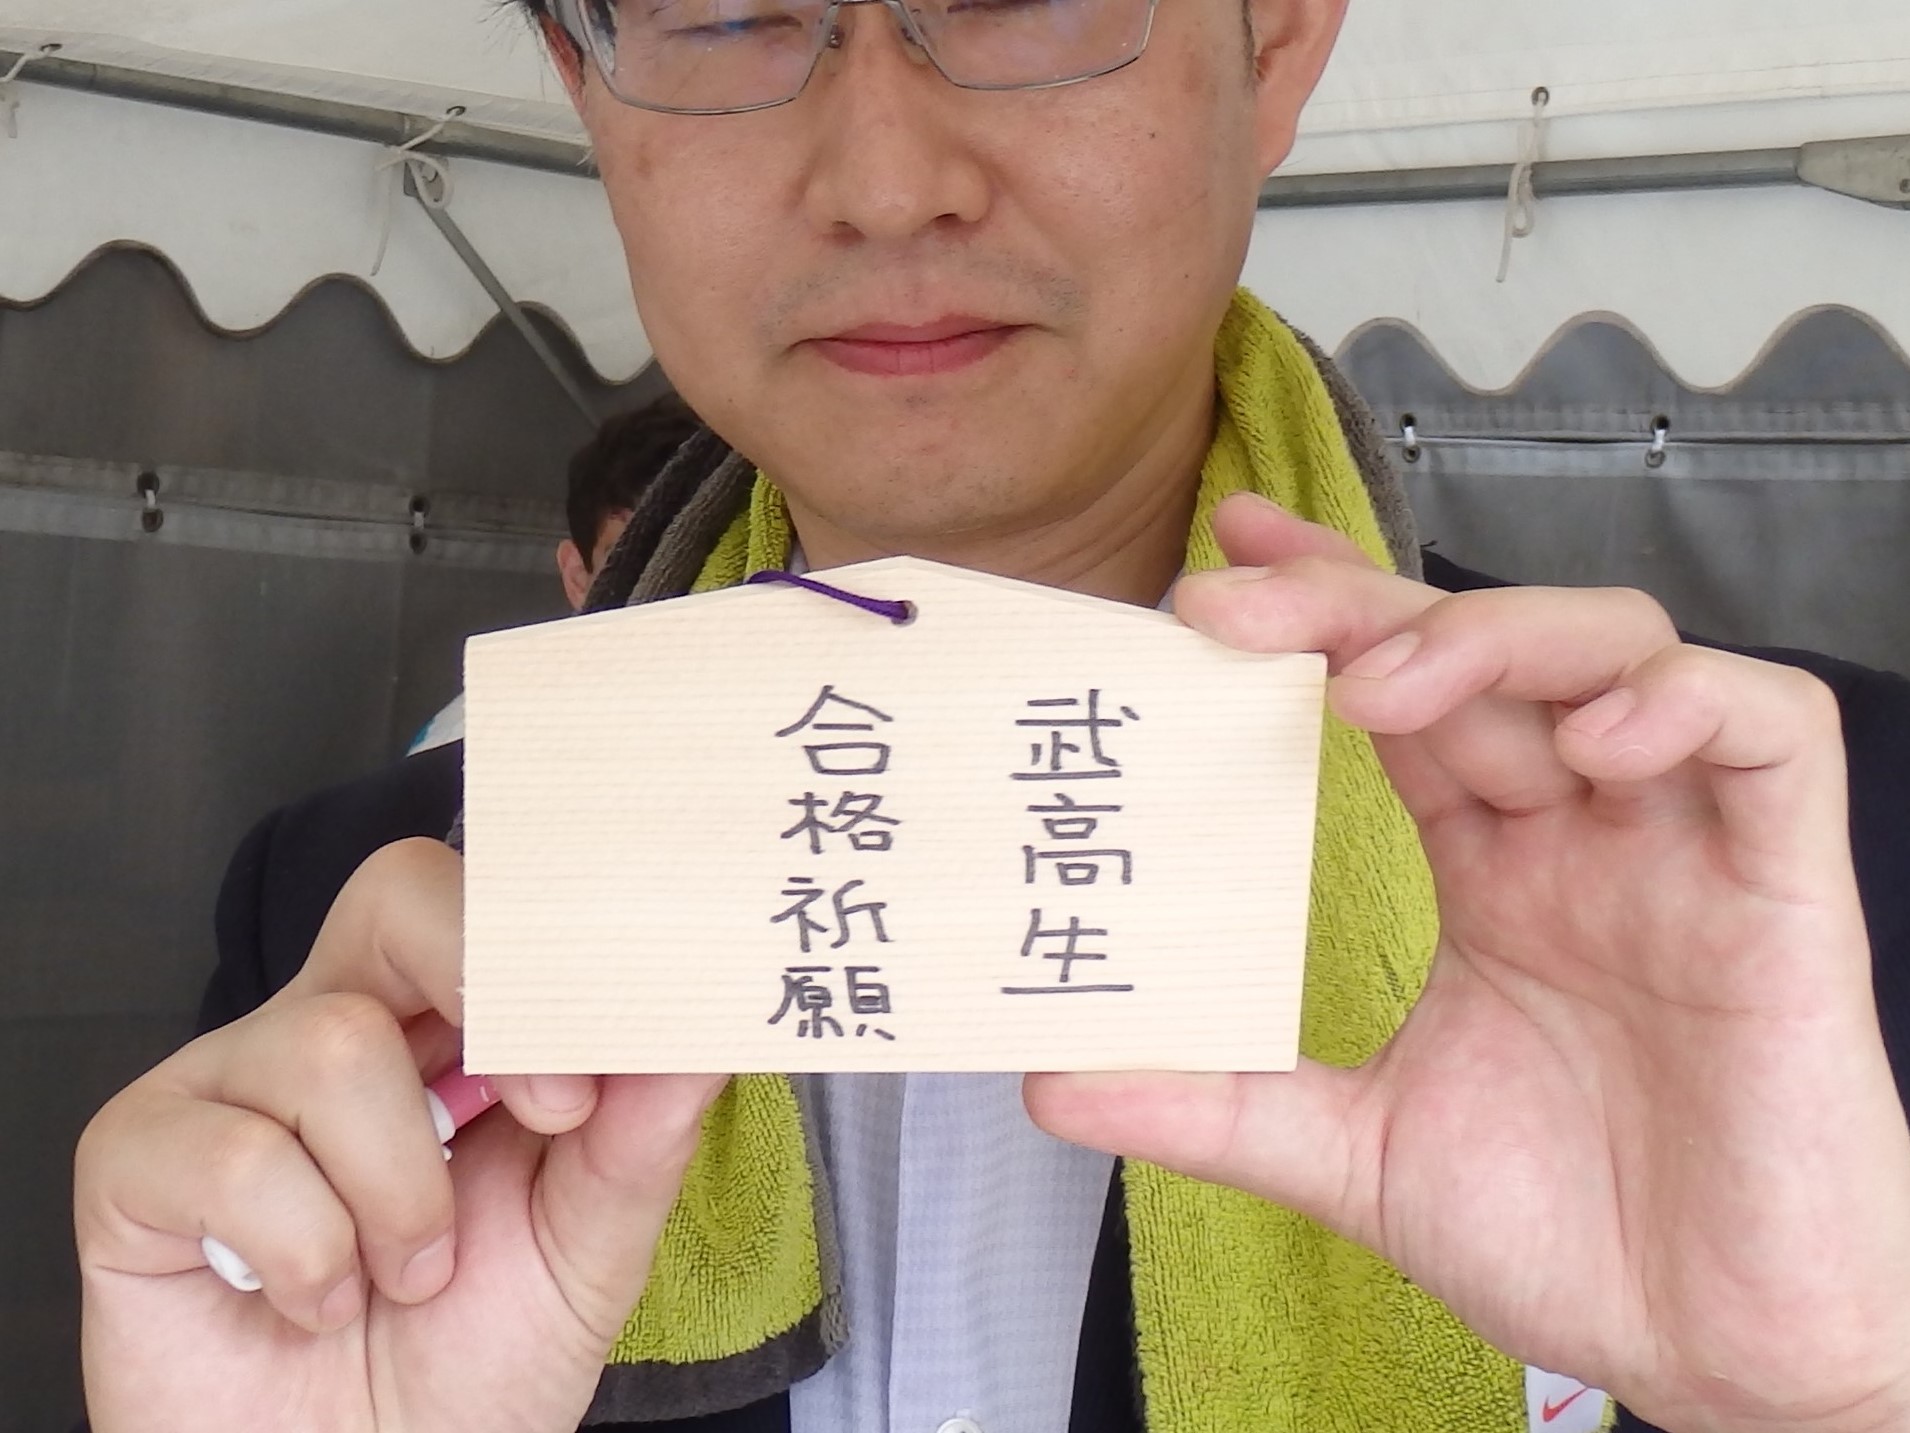 武高生
合格祈願